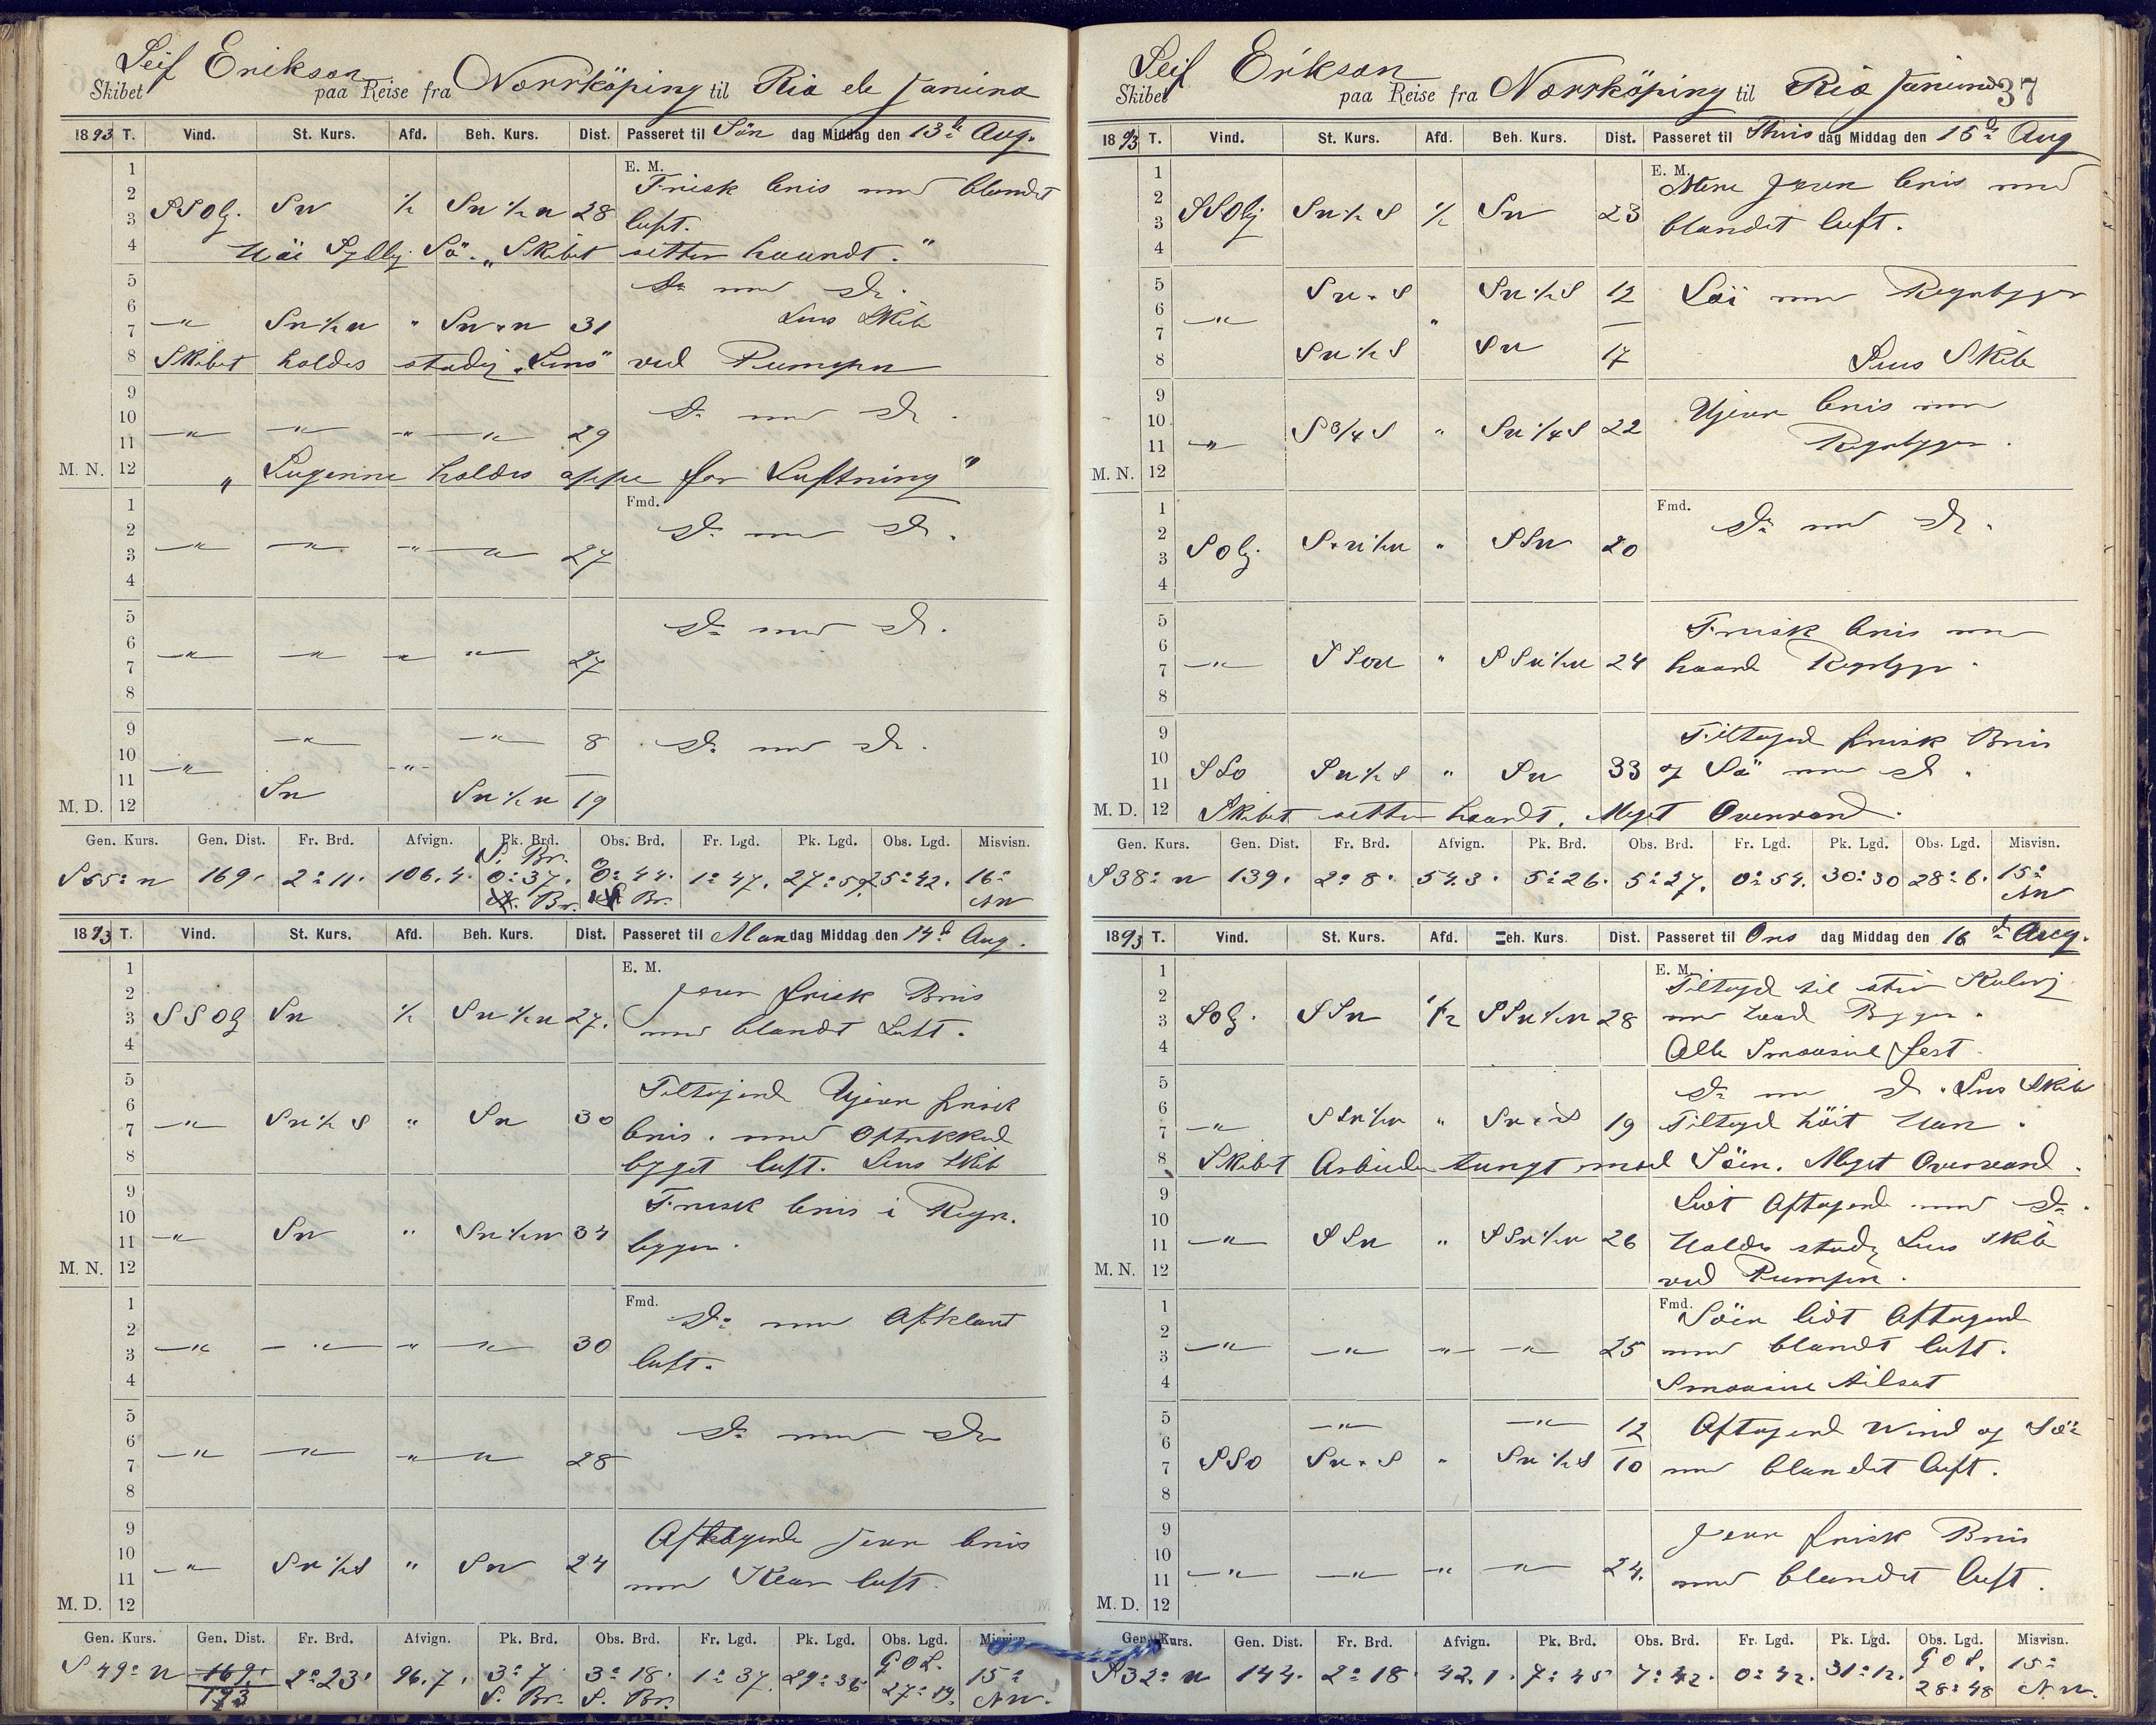 Leif Erikson
Skibet paa Reise fra Norrköping til Rio de Janeiro
1893 T. Vind. St. Kurs. Afd. Beh. Kurs. Dist. Passeret til Søn dag Middag den 13de Aug.
E. M.
1
2 Frisk bris med blandet
3 SSOlj. SW ½ SW½W 28 luft.
4 Høi Sydlig Sö. „Skibet sætter haardt."
5 Do med Do.
6
7 —"— SW½W " SW.W 31 Lens Skib
8 Skibet holdes stadig „Lens" ved Pumpen
9
10 Do med Do.
11 —"— —"— —"— —"— 29
M. N. 12 „Lugerne holdes oppe for Luftning"
Fmd.
1
2 Do med Do.
3 —"— —"— —"— —"— 27
4
5
6 Do med Do.
7 —"— —"— —"— —"— 27
8
9 —"— —"— 8 Do med Do.
10
11 —"— —"—
M. D. 12 SW SW½W 19
Gen. Kurs. Gen. Dist. Fr. Brd. Afvign. Pk. Brd. Obs. Brd. Fr. Lgd. Pk. Lgd. Obs. Lgd. Misvisn.
S. Br.
S 65° W 169. 2° 11' 106.4. 0° 37. 0° 44. 1° 47. 27° 59. 25° 42. 16°
Br. Br. NW
1893 T. Vind. St. Kurs. Afd. Beh. Kurs. Dist. Passeret til Man dag Middag den 14de Aug.
E. M.
1
2 Jevn frisk Bris
3 SSOlj SW ½ SW½W 27. med blandt Luft.
4
5 Tiltagend Ujevn frisk
6
7 —"— SW½S " SW 30 bris. med Oftrækkend
8 bygget luft. Lens Skib
9 Frisk bris i Regn.
10
11 —"— SW " SW½W 34 bygger.
M. N. 12
Fmd.
1 Do med Afklaret
2
3 —"— —"— —"— —"— 30 luft.
4
5 Do med Do
6
7 —"— —"— —"— —"— 28
8
9 Aftagende Jevn bris
10
11 —"— SW½S " SW 24 med Klar luft.
M. D. 12
Gen. Kurs. Gen. Dist. Fr. Brd. Afvign. Pk. Brd. Obs. Brd. Fr. Lgd. Pk. Lgd. Obs. Lgd. Misvisn.
G O L.
S 49° W 169. 2° 23' 96.7. 3° 7. 3° 18. 1° 37. 29° 36 27° 19. 15°
193 S. Br. S. Br. NW.
Leif Erikson 37
Skibet paa Reise fra Norrköping til Rio Janeiro
1893 T. Vind. St. Kurs. Afd. Beh. Kurs. Dist. Passeret til Thirs dag Middag den 15de Aug
E. M.
1 Mere Jevn bris med
2
3 SSOlj SW½S ½ SW 23 blandet luft.
4
5 SW.S SW½S 12 Löi med Regnbyger
6 —"— "
7
8 SW½S SW 17 Lens Skib
9 Ujevn bris med
10
11 —"— S¾S " SW¼S 22 Regnbyger.
M. N. 12
Fmd.
1 Do med Do.
2
3 SOlj. S.W½W " SSW 20
4
5 Frisk bris med
6
7 —"— SSW " SSW½W 24 haard Regnbyger.
8
9 Tiltagend frisk Bris
10
11 SSO SW½S " SW 33 og Sö med Do.
M. D. 12 Skibet sætter haardt. Meget Overvand.
Gen. Kurs. Gen. Dist. Fr. Brd. Afvign. Pk. Brd. Obs. Brd. Fr. Lgd. Pk. Lgd. Obs. Lgd. Misvisn.
S38° W 139. 2° 8. 54.3. 5° 26. 5° 27. 0° 54. 30° 30 28° 6. 15°
NW
1893 T. Vind. St. Kurs. Afd. Beh. Kurs. Dist. Passeret til Ons dag Middag den 16de Aug.
E. M.
1 Tiltagd til stiv Kuling
2
3 SOlj. SSW ½ SSW½W 28 med haard Byger.
4 Alle Smaaseil fast.
5 Do med Do. Lens Skib
6
7 —"— SSW½W " SW.S 19 Tiltagd höit Hav.
8 Skibet Arbeider tungt med Söen. Meget Overvand.
9 Lidt Aftagend med Do.
10
11 —"— SSW " SSW½W 26 Holdes stadig Lens Skib
M. N. 12 ved Pumpen.
Fmd.
1 Söen lidt Aftagend
2
3 —"— —"— —"— —"— 25 med blandt luft.
4 Smaaseil tilsat
5 —"— —"— 12 Aftagend Wind og Sö
6
7 SSO SW.S " SW½S 10 med blandet luft.
8
9 Jevn frisk Bris
10
11 —"— —"— —"— —"— 24. med blandet luft.
M. D. 12
Gen. Kurs. Gen. Dist. Fr. Brd. Afvign. Pk. Brd. Obs. Brd. Fr. Lgd. Pk. Lgd. Obs. Lgd. Misvisn.
G O L.
S32° W 144. 2° 18. 42.1. 7° 45 7° 42. 0° 42. 31° 12. 28° 48 15°
NW.